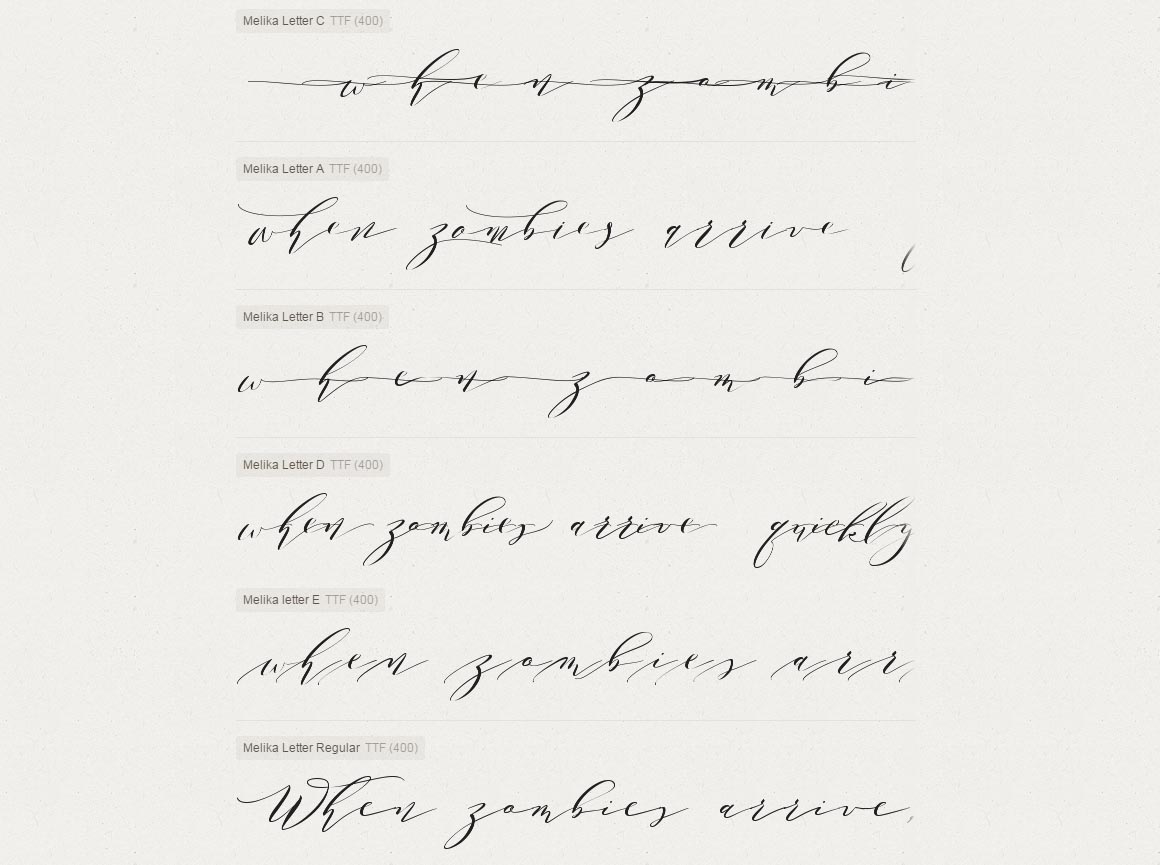 Melika Letter C TTF (400)
when zombi
Melika Letter A TTF (400)
when zombies arrive
Melika Letter B TTF (400)
when zombi
Melika Letter D TTF (400)
when zombies arrive quickly
Melika letter E TTF (400)
when zombies arr
Melika Letter Regular TTF (400)
When zombies arrive,